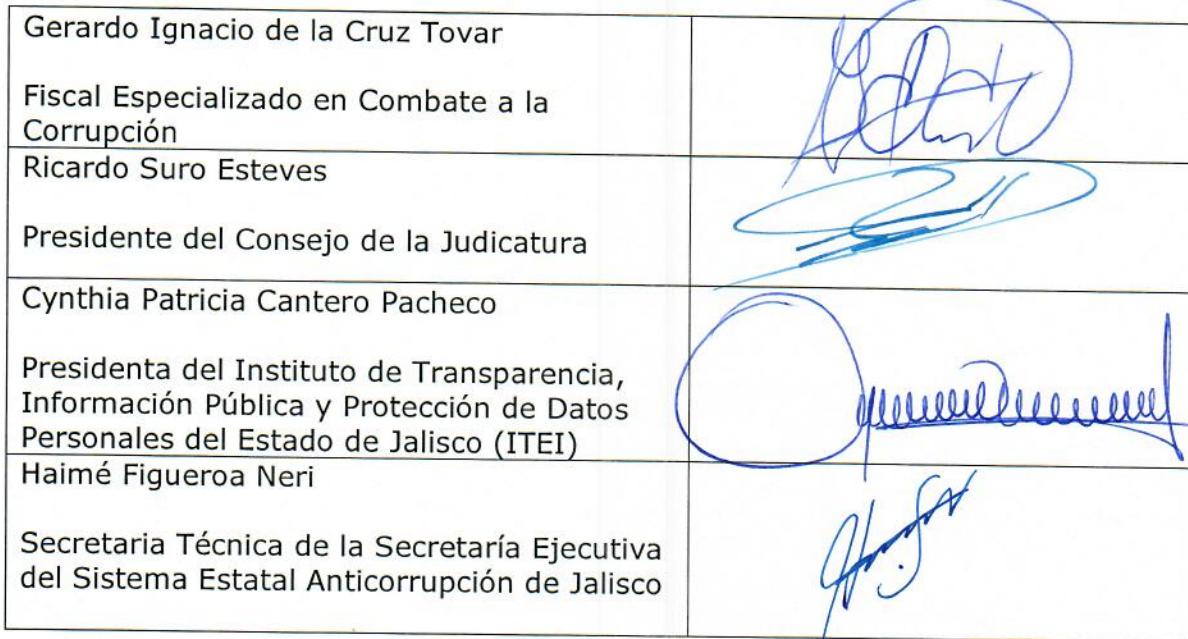 Gerardo Ignacio de la Cruz Tovar
Fiscal Especializado en Combate a la
Corrupción
Ricardo Suro Esteves
Presidente del Consejo de la Judicatura
Cynthia Patricia Cantero Pacheco
Presidenta del Instituto de Transparencia,
Información Pública y Protección de Datos
Personales del Estado de Jalisco (ITEI)
Haimé Figueroa Neri
Secretaria Técnica de la Secretaría Ejecutiva
del Sistema Estatal Anticorrupción de Jalisco